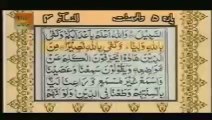 پارہ ۵ والمحصنت النسآء ۴
السَّبِيْلَ وَاللّٰهُ اَعْلَمُ بِاَعْدَآئِكُمْ وَكَفٰى
بِاللّٰهِ وَلِيًّا وَّكَفٰى بِاللّٰهِ نَصِيْرًا مِنَ
الَّذِيْنَ هَادُوْا يُحَرِّفُوْنَ الْكَلِمَ عَنْ
مَّوَاضِعِهٖ وَيَقُوْلُوْنَ سَمِعْنَا وَعَصَيْنَا
وَاسْمَعْ غَيْرَ مُسْمَعٍ وَّرَاعِنَا لَيًّا
بِاَلْسِنَتِهِمْ وَطَعْنًا فِي الدِّيْنِ وَلَوْ